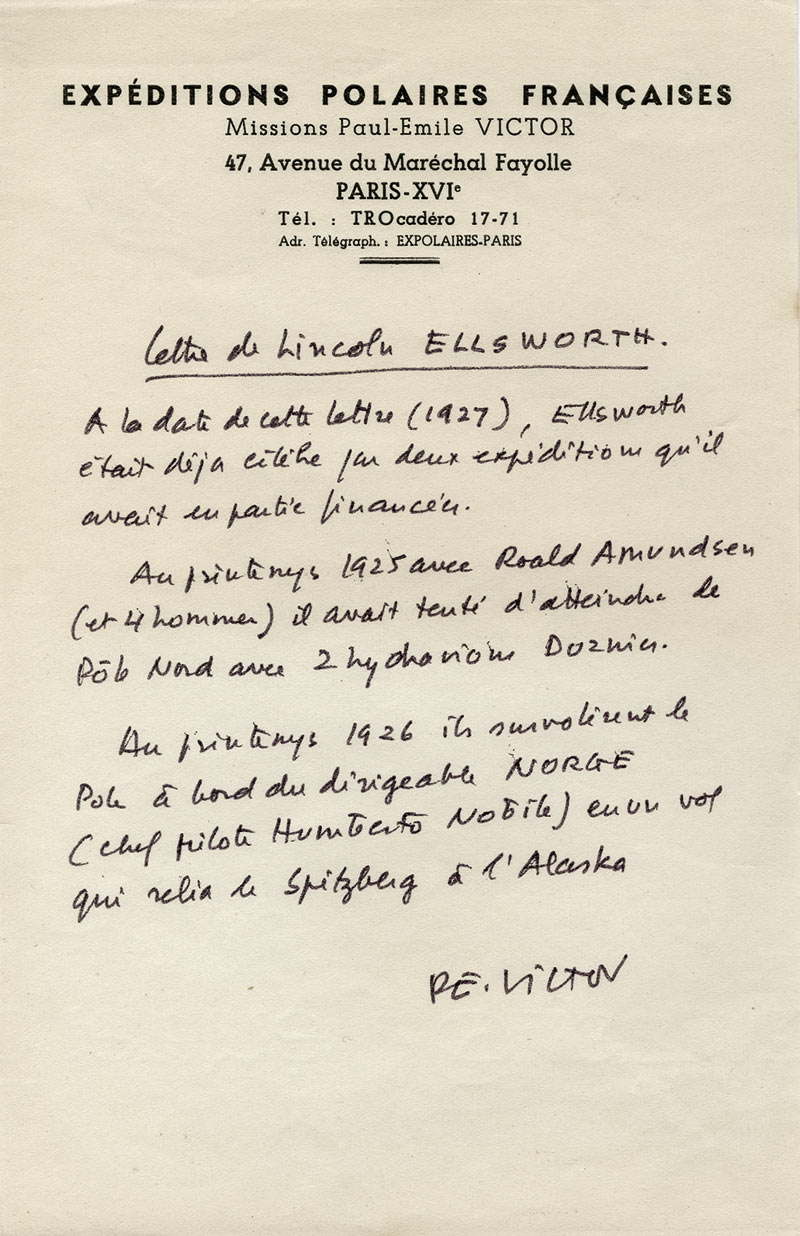 EXPÉDITIONS POLAIRES FRANÇAISES
Missions Paul-Emile VICTOR
47, Avenue du Maréchal Fayolle
PARIS-XVIe
Tél. : TROcadéro 17-71
Adr. Télégraph. : EXPOLAIRES-PARIS
Lettre de Lincoln ELLSWORTH.
A la date de cette lettre (1927), Ellsworth
était déja célèbre par deux expéditions qu'il
avait en partie financées.
Au printemps 1925 avec Roald Amundsen
(et 4 hommes) il avait tenté d'atteindre le
Pôle Nord avec 2 hydravions Dornier.
Au printemps 1926 ils survolèrent le
Pole à bord du dirigeable NORGE
(chef pilote Humberto Nobile) en un vol
qui relia le Spitzberg à l'Alaska
P.E. VICTOR